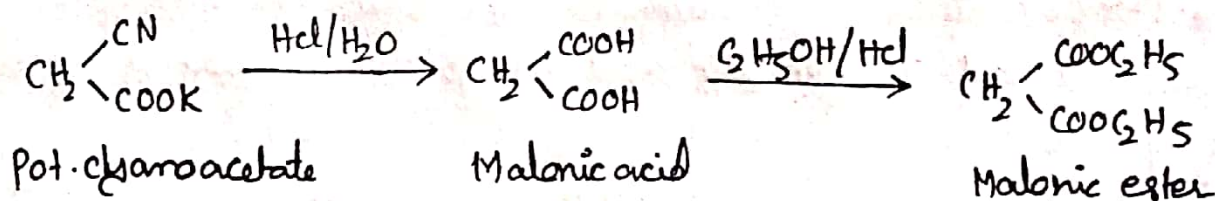 CH₂ CN COOK HCl/H₂O CH₂ COOH COOH C₂H₅OH/HCl CH₂ COOC₂H₅ COOC₂H₅
Pot. cyanoacetate Malonic acid Malonic ester